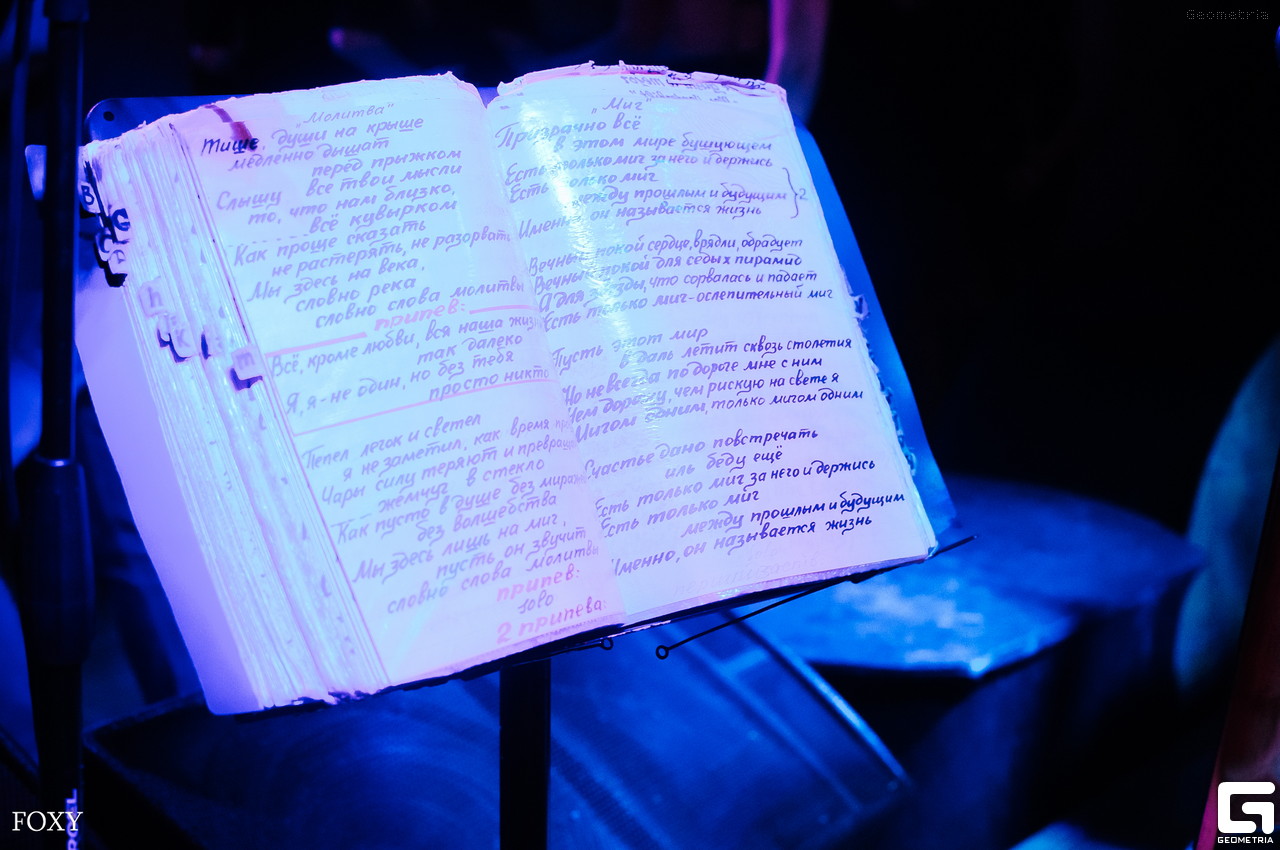 Geometria
„Молитва"
Тише, души на крыше
медленно дышат
перед прыжком
Слышу все твои мысли
то, что нам близко,
всё кувырком
Как проще сказать
не растерять, не разорвать
Мы здесь на века,
словно река
словно слова молитвы
припев:
Всё, кроме любви, вся наша жиз
так далеко
Я, я - не один, но без тебя
просто никто
Пепел легок и светел
я не заметил, как время
Чары силу теряют и превращ
жемчуг в стекло
Как пусто в душе без мира
без волшебства
Мы здесь лишь на миг,
пусть он звучит
словно слова молитвы
припев:
соло
2 припева:
„Миг"
Призрачно всё
в этом мире бушующем
Есть только миг за него и держись
Есть только миг
между прошлым и будущим } 2
Именно, он называется жизнь
Вечный покой сердце, вряд ли, обрадует
Вечный покой для седых пирамид
А для звезды, что сорвалась и падает
Есть только миг - ослепительный миг
Пусть этот мир
в даль летит сквозь столетия
Но не всегда по дороге мне с ним
Чем дорожу, чем рискую на свете я
Мигом одним, только мигом одним
Счастье дано повстречать
иль беду ещё
Есть только миг за него и держись
Есть только миг
между прошлым и будущим
Именно, он называется жизнь
В
Г
К
FOXY
G
GEOMETRIA